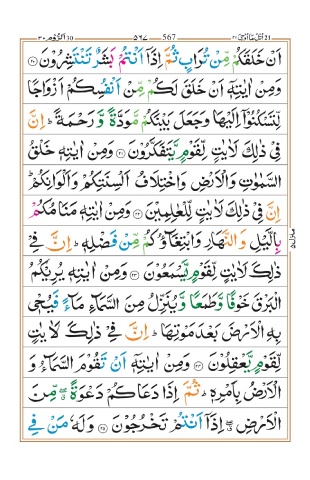 اَنْ خَلَقَكُمْ مِّنْ تُرَابٍ ثُمَّ اِذَاۤ اَنْتُمْ بَشَرٌ تَنْتَشِرُوْنَ ﴿۲۰﴾
وَمِنْ اٰيٰتِهٖۤ اَنْ خَلَقَ لَكُمْ مِّنْ اَنْفُسِكُمْ اَزْوَاجًا
لِّتَسْكُنُوْۤا اِلَيْهَا وَجَعَلَ بَيْنَكُمْ مَّوَدَّةً وَّرَحْمَةً ؕ اِنَّ
فِيْ ذٰلِكَ لَاٰيٰتٍ لِّقَوْمٍ يَّتَفَكَّرُوْنَ ﴿۲۱﴾ وَمِنْ اٰيٰتِهٖ خَلْقُ
السَّمٰوٰتِ وَالْاَرْضِ وَاخْتِلَافُ اَلْسِنَتِكُمْ وَاَلْوَانِكُمْ ؕ
اِنَّ فِيْ ذٰلِكَ لَاٰيٰتٍ لِّلْعٰلِمِيْنَ ﴿۲۲﴾ وَمِنْ اٰيٰتِهٖ مَنَامُكُمْ
بِالَّيْلِ وَالنَّهَارِ وَابْتِغَآؤُكُمْ مِّنْ فَضْلِهٖ ؕ اِنَّ فِيْ
ذٰلِكَ لَاٰيٰتٍ لِّقَوْمٍ يَّسْمَعُوْنَ ﴿۲۳﴾ وَمِنْ اٰيٰتِهٖ يُرِيْكُمُ
الْبَرْقَ خَوْفًا وَّطَمَعًا وَّيُنَزِّلُ مِنَ السَّمَآءِ مَآءً فَيُحْيٖ
بِهِ الْاَرْضَ بَعْدَ مَوْتِهَا ؕ اِنَّ فِيْ ذٰلِكَ لَاٰيٰتٍ
لِّقَوْمٍ يَّعْقِلُوْنَ ﴿۲۴﴾ وَمِنْ اٰيٰتِهٖۤ اَنْ تَقُوْمَ السَّمَآءُ وَ
الْاَرْضُ بِاَمْرِهٖ ؕ ثُمَّ اِذَا دَعَاكُمْ دَعْوَةً ۖ مِّنَ
الْاَرْضِ ۖ اِذَاۤ اَنْتُمْ تَخْرُجُوْنَ ﴿۲۵﴾ وَلَهٗ مَنْ فِي